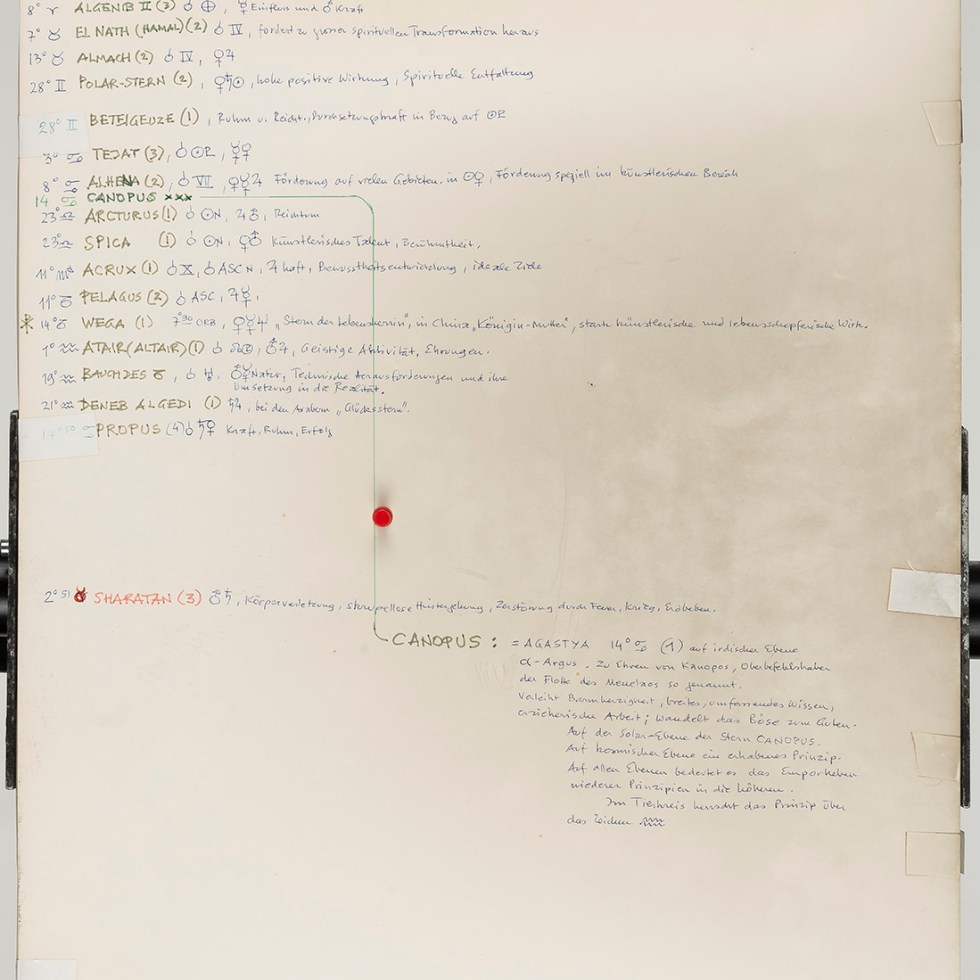 8° ♈ ALGENIB II (3) ☌ ⊕, ☿ Einfluss und ♂ Kraft
7° ♉ EL NATH (HAMAL) (2) ☌ IV, fordert zu grosser spirituellen Transformation heraus
13° ♉ ALMACH (2) ☌ IV, ♀♃
28° II POLAR-STERN (2), ♀♄☉, hohe positive Wirkung, Spirituelle Entfaltung
28° II BETEIGEUZE (1), Ruhm u. Reicht., Durchsetzungskraft in Bezug auf ☉R
3° ♋ TEJAT (3), ☌ ☉R, ☿♀
8° ♋ ALHENA (2), ☌ VII, ♀☿♃ Förderung auf vielen Gebieten. in ☉♀, Förderung speziell im künstlerischen Bereich
14 ♋ CANOPUS ×××
23° ♎ ARCTURUS (1) ☌ ☉N, ♃♂, Reichtum
23° ♎ SPICA (1) ☌ ☉N, ♀♂ Künstlerisches Talent, Berühmtheit,
11° ♏ ACRUX (1) ☌ X, ☌ ASC N, ♃ haft, Bewusstheitsentwicklung, ideale Ziele
11° ♑ PELAGUS (2) ☌ ASC, ♃☿,
* 14° ♑ WEGA (1) 7°30 ORB, ♀☿♃ „Stern der Lebensherrin", in China „Königin-Mutter", stark künstlerische und lebensschöpferische Wirk.
1° ♒ ATAIR (ALTAIR) (1) ☌ ☊☽, ♂♃, Geistige Aktivität, Ehrungen.
19° ♒ BAUCH DES ♑, ☌ ♅. ♂☿ Natur, Technische Herausforderungen und ihre
Umsetzung in die Realität.
21° ♒ DENEB ALGEDI (1) ♄♃, bei den Arabern „Glücksstern".
♋ PROPUS (4) ☌ ♄♀ Kraft, Ruhm, Erfolg
2° 51 ♉ SHARATAN (3) ♂♄, Körperverletzung, skrupellose Hintergehung, Zerstörung durch Feuer, Krieg, Erdbeben.
CANOPUS : = AGASTYA 14° ♋ (1) auf irdischer Ebene
α-Argus. Zu Ehren von Kanopos, Oberbefehlshaber
der Flotte des Menelaos so genannt.
Verleiht Barmherzigkeit, breites, umfassendes Wissen,
erzieherische Arbeit; wandelt das Böse zum Guten.
Auf der Solar-Ebene der Stern CANOPUS.
Auf kosmischer Ebene ein erhabenes Prinzip.
Auf allen Ebenen bedeutet es das Emporheben
niederer Prinzipien in die höheren.
Im Tierkreis herrscht das Prinzip über
das Zeichen ♒